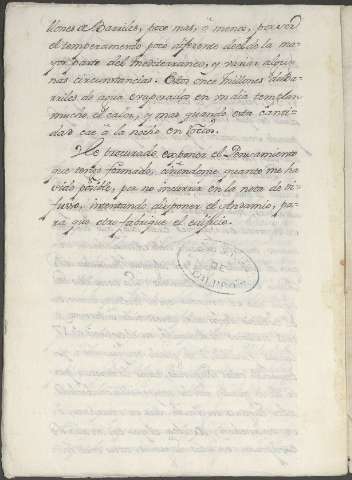 llones de Barriles, poco mas, ó menos, por ser
el temperamento poco diferente de el de la ma
yor parte del mediterraneo, y variar algu
nas circunstancias. Estos once millones de Ba
rriles de agua evaporados en un dia templan
mucho el calor, y mas quando esta canti
dad cae á la noche en rocio.
He procurado exponer el Pensamiento
que tengo formado, ciñendome quanto me ha
sido posible, por no incurrir en la nota de di
fuso, intentando disponer el Andamio, pa
ra que otro fabrique el edificio.
DE